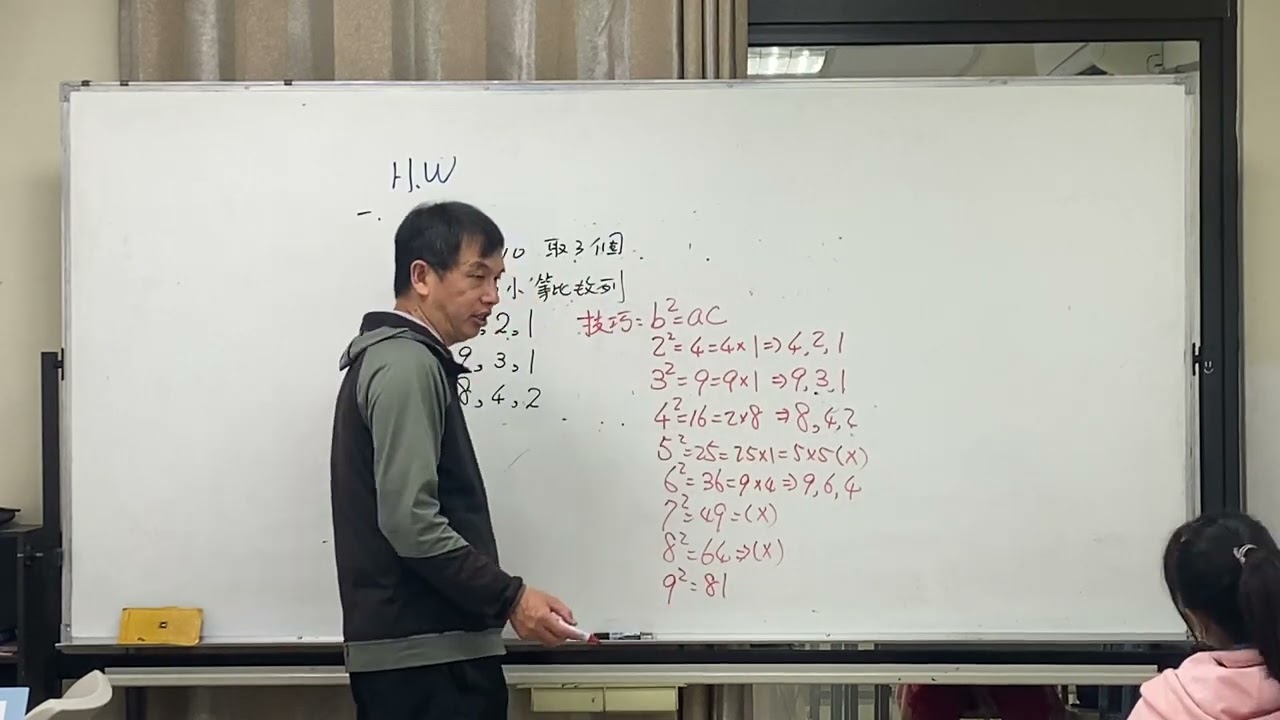 H.W
一.
10 取3個
小等比数列
, 2, 1
9, 3, 1
8, 4, 2
技巧: b²=ac
2²=4=4×1⇒4,2,1
3²=9=9×1⇒9,3,1
4²=16=2×8⇒8,4,2
5²=25=25×1=5×5(×)
6²=36=9×4⇒9,6,4
7²=49=(×)
8²=64⇒(×)
9²=81